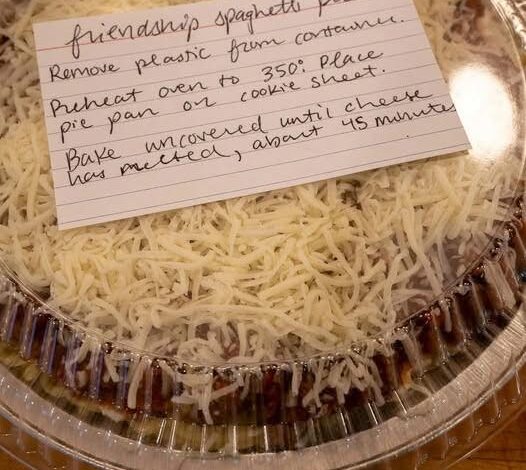 friendship spaghetti
Remove plastic from container.
Preheat oven to 350°. Place
pie pan on cookie sheet.
Bake uncovered until cheese
has melted, about 45 minutes